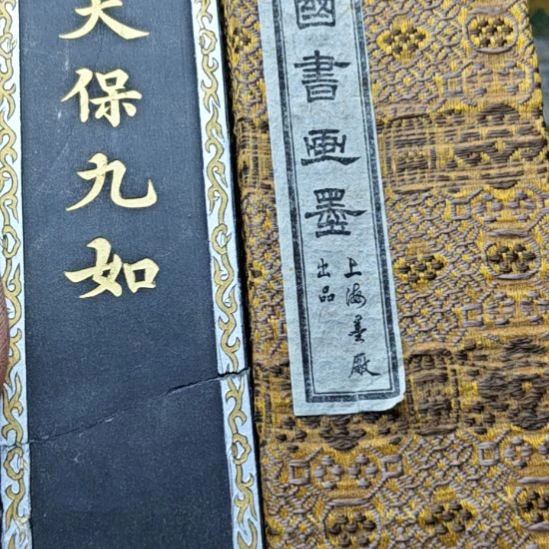 天保九如
國書画墨
上海墨厰
出品